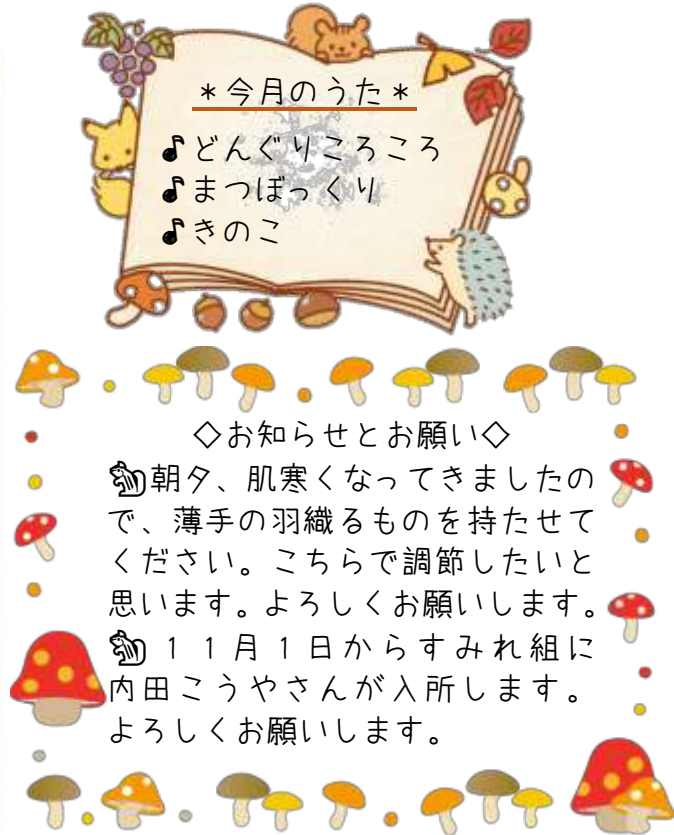 ＊今月のうた＊
♪どんぐりころころ
♪まつぼっくり
♪きのこ
◇お知らせとお願い◇
🐿朝夕、肌寒くなってきましたの
で、薄手の羽織るものを持たせて
ください。こちらで調節したいと
思います。よろしくお願いします。
🐿１１月１日からすみれ組に
内田こうやさんが入所します。
よろしくお願いします。